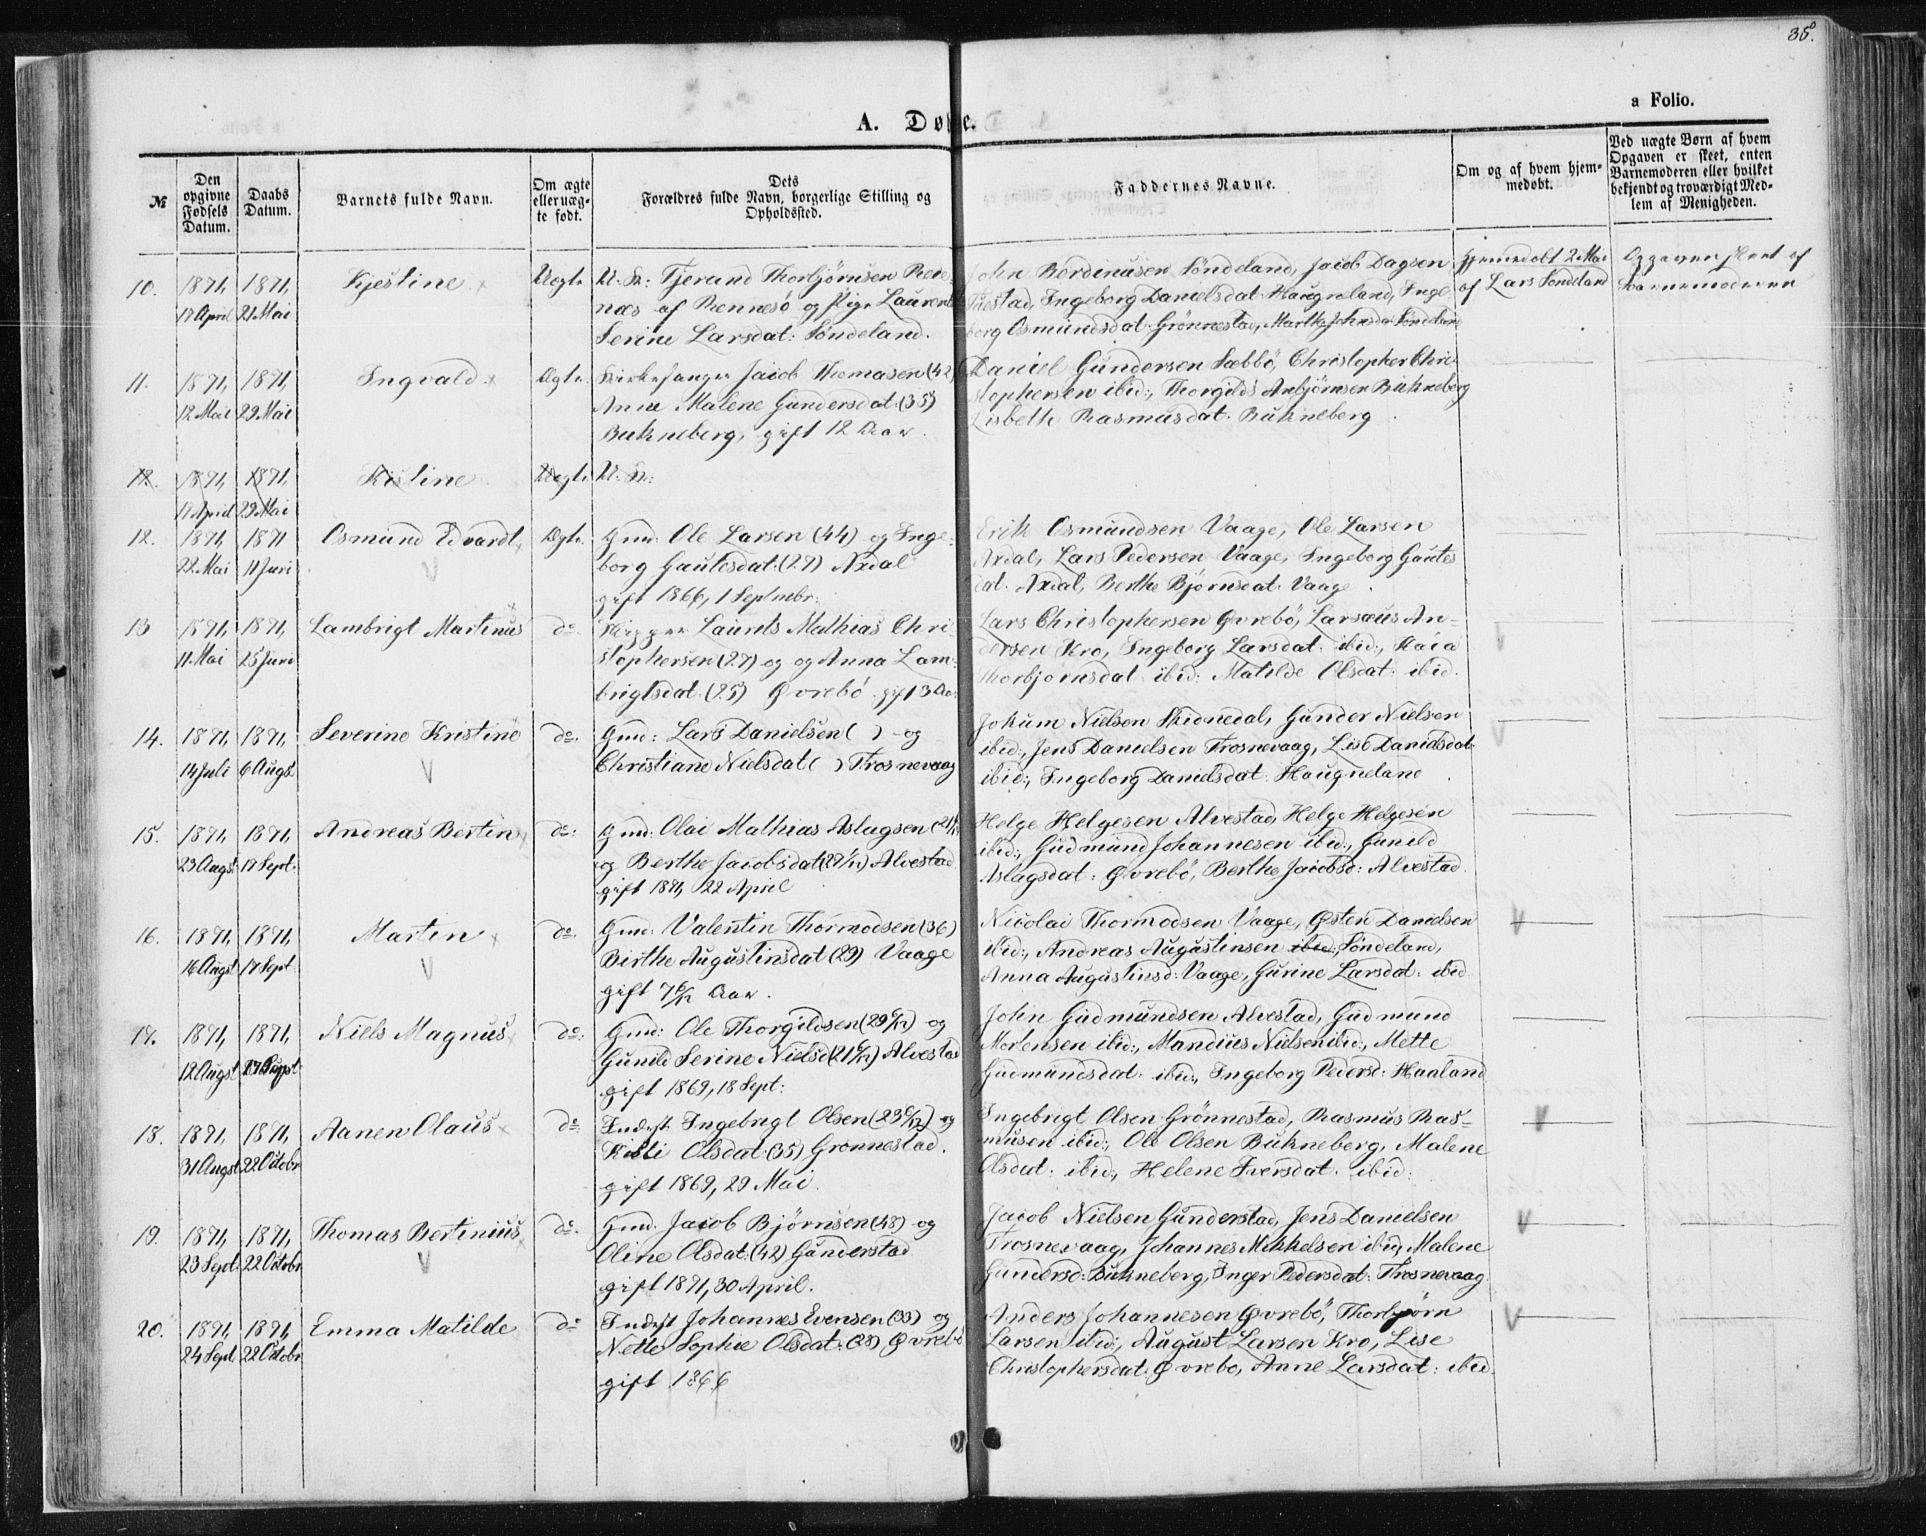 38.
a Folio.
A. Døbte.
№
Den opgivne Fødsels Datum.
Daabs Datum.
Barnets fulde Navn.
Om ægte eller uægte født.
Dets Forældres fulde Navn, borgerlige Stilling og Opholdssted.
Faddernes Navne.
Om og af hvem hjemmedøbt.
Ved uægte Børn af hvem Opgaven er skeet, enten Barnemoderen eller hvilket bekjendt og troværdigt Medlem af Menigheden.
10. 1871, 17 April 1871, 21 Mai Kjestine Uegte
U. K: Tjerand Thorbjørnsen
næs af Rennesø og Pige
Serine Larsdat: Søndeland.
John Berdinusen Søndeland, Jacob Dagsen
Ingeborg Danielsdat Haugneland, Inge-
borg Osmundsdat Grønnestad, Marthe Johnsd: Søndeland
Hjemmedøbt 2 Mai
af Lars Søndeland
Opgaven skeet af
Barnemoderen
11. 1871, 12 Mai 1871, 29 Mai Ingvald Ægte
Kirkesanger Jacob Thomasen (42)
Anne Malene Gundersdat: (35)
Bukneberg, gift 12 Aar.
Daniel Gundersen Sæbbø, Christopher Chri-
stophersen ibid:, Thorgilds Anbjørnsen Bukneberg
Lisbeth Rasmusdat. Bukneberg
12. 1871, 17 April 1871, 29 Mai Kistine Uegte U. K:
12. 1871, 22 Mai 1871 11 Juni Osmund Edvardt Ægte
Gmd: Ole Larsen (44) og Inge-
borg Gautesdat: (27) Axdal
gift 1866, 1 Septmbr:
Erik Osmundsen Vaage, Ole Larsen
Axdal, Lars Pedersen Vaage, Ingeborg Gautes
dat. Axdal, Berthe Bjørnsdat Vaage.
13 1871, 11 Mai 1871, 25 Juni Lambrigt Martinus do.
Skipper Laurits Mathias Chri-
stophersen (27) og og Anna Lam-
brigtsdat: (25) Øvrebø gift 3 Aar
Lars Christophersen Øvrebø, Larsæus An-
dersen Kro, Ingeborg Larsdat: ibid:, Kaia
Thorbjørnsdat: ibid: Matilde Olsdat: ibid.
14. 1871, 14 Juli 1871, 6 Augst. Severine Kristine do.
Gmd: Lars Danielsen ( ) og
Christiane Nielsdat ( ) Trosnevaag
Jokum Nielsen Skidnedal, Gunder Nielsen
ibid:, Jens Danielsen Trosnevaag, Lise Danielsdat
ibid:, Ingeborg Danielsdat: Haugneland.
15. 1871, 23 Augst 1871, 17 Sept: Andreas Bertin do:
Gmd: Olai Mathias Aslagsen
og Berthe Jacobsdat Alvestad
gift 1871, 22 April
Helge Helgesen Alvestad, Helge Helgesen
ibid:, Gudmund Johannesen ibid:, Gunild
Aslagsdat: Øvrebø, Berthe Jacobsd: Alvestad.
16. 1871, 16 Augst 1871, 17 Sept: Martin do.
Gmd: Valentin Thormodsen (36)
Birthe Augustinsdat (29) Vaage
gift 7 6/12 Aar.
Nicolai Thormodsen Vaage, Østen Danielsen
ibid:, Andreas Augustinsen ibid:, Søndeland,
Anna Augustinsd: Vaage, Gurine Larsdat: ibid
17. 1871, 12 Augst 1871, 17 Sept Niels Magnus do:
Gmd: Ole Thorgildsen og
Gunild Serine Nielsd Alvestad
gift 1869, 18 Sept:
John Gudmundsen Alvestad, Gudmund
Mortensen ibid:, Mandius Nielsen ibid:, Mette
Gudmundsdat: ibid:, Ingeborg Pedersd: Haaland
18. 1871, 31 Augst 1871, 22 Octobr Aanen Olaus do:
Inderst Ingebrigt Olsen og
Olsdat: (35) Grønnestad.
gift 1869, 29 Mai.
Ingebrigt Olsen Grønnestad, Rasmus Ras-
musen ibid:, Ole Olsen Bukneberg, Malene
Olsdat: ibid:, Helene Iversdat: ibid:
19. 1871, 23 Sept: 1871, 22 Octobr Thomas Bertinius do.
Gmd. Jacob Bjørnsen (48) og
Oline Olsdat: (42) Gunderstad
gift 1871, 30 April.
Jacob Nielsen Gunderstad, Jens Danielsen
Trosnevaag, Johannes Mikkelsen ibid, Malene
Gundersd: Bukneberg, Inger Pedersdat: Trosnevaag.
20. 1871, 24 Sept 1871, 22 Octobr Emma Matilde do
Inderst Johannes Evensen (33) og
Sophie Olsdat: (38) Øvrebø
gift 1866
Anders Johannesen Øvrebø, Thorbjørn
Larsen ibid:, August Larsen Kro, Lise
Christophersdat. Øvrebø, Anne Larsdat: ibid.